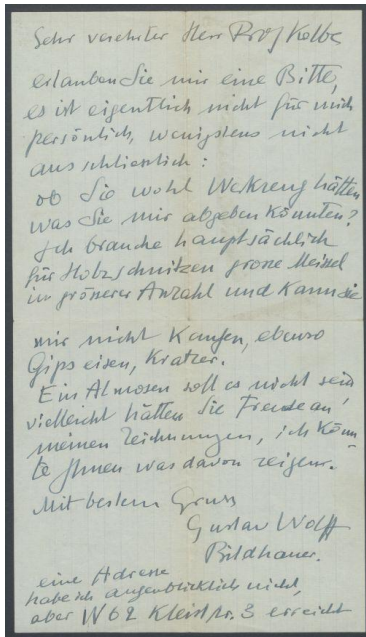 Sehr verehrter Herr Prof Kolbe
erlauben Sie mir eine Bitte,
es ist eigentlich nicht für mich
persönlich, wenigstens nicht
ausschliesslich:
ob Sie wohl Werkzeug hätten
was Sie mir abgeben könnten?
Ich brauche hauptsächlich
für Holzschnitzen grosse Meisel
in grösserer Anzahl und kann sie
mir nicht kaufen, ebenso
Gipseisen, Kratzer.
Ein Almosen soll es nicht sein,
vielleicht hätten Sie Freude an
meinen Zeichnungen, ich könn-
te Ihnen was davon zeigen.
Mit bestem Gruss
Gustav Wolff
Bildhauer.
eine Adresse
habe ich augenblicklich nicht,
aber W 62 Kleiststr. 3 erreicht